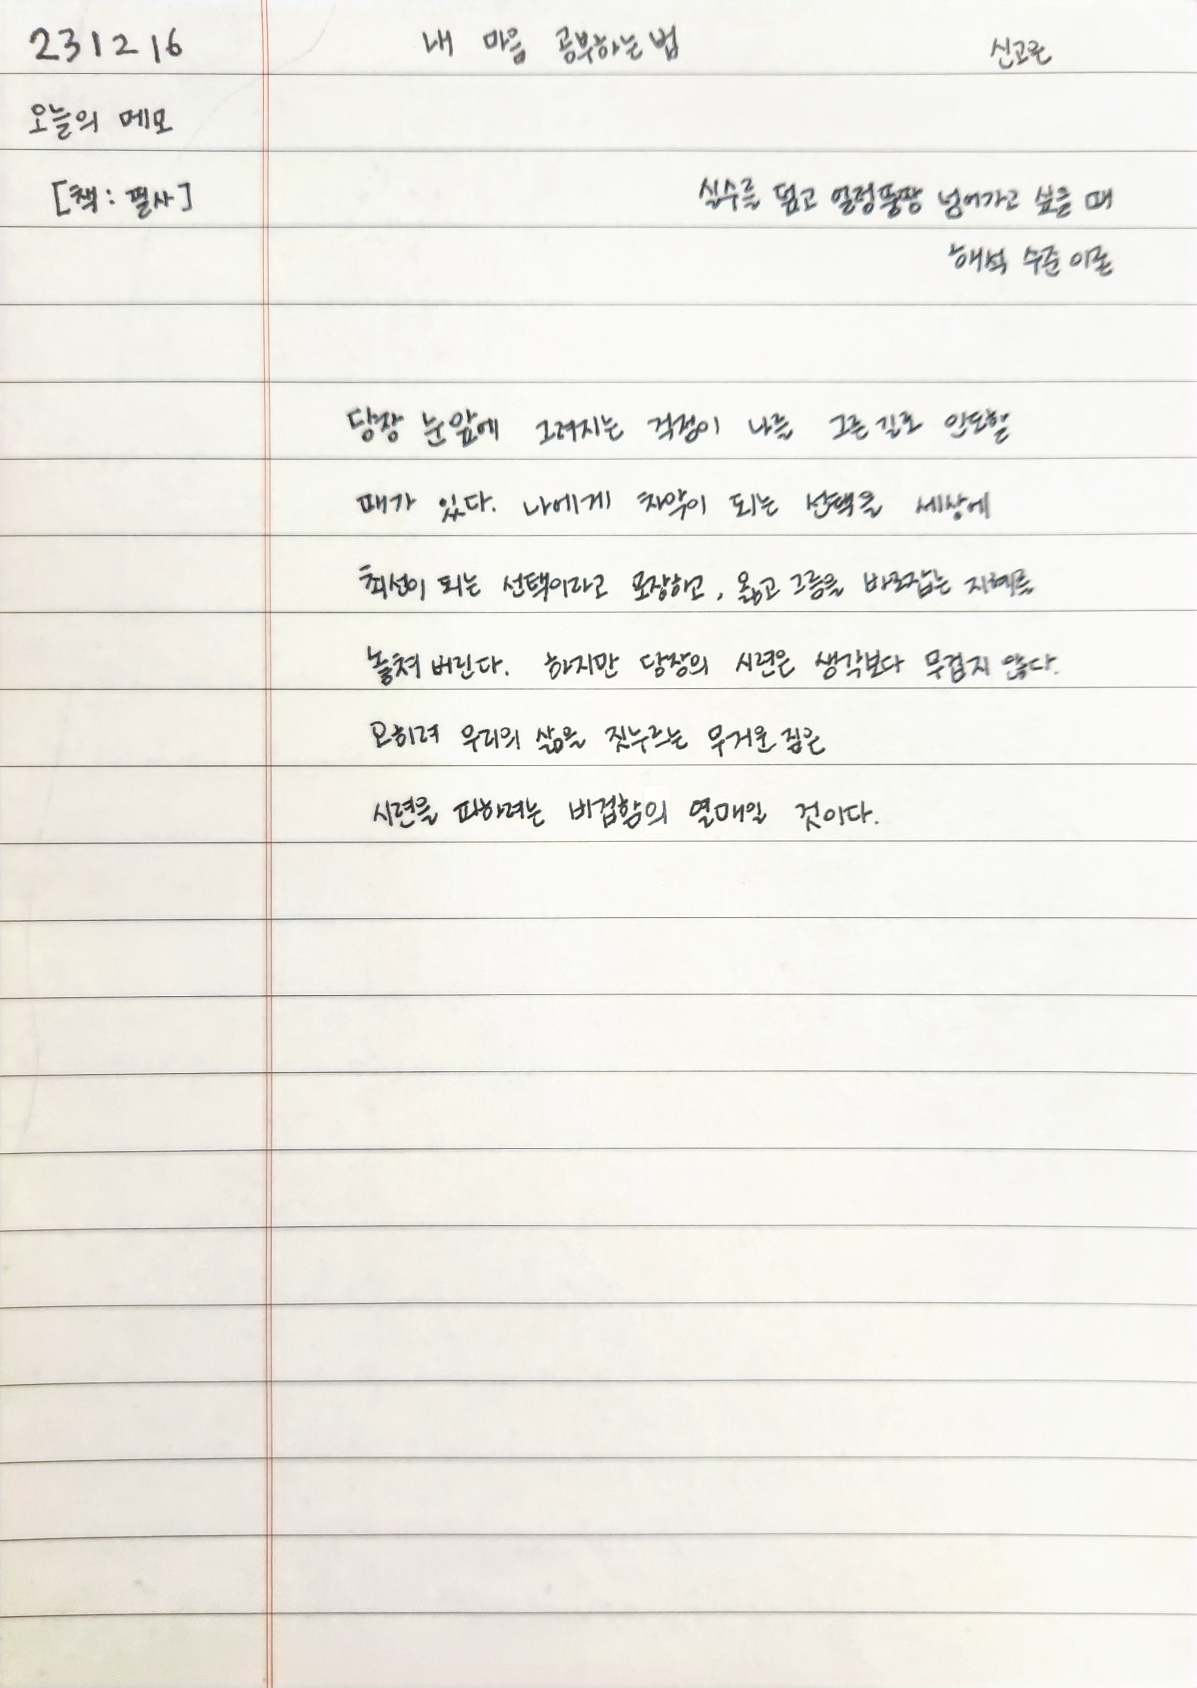 231216 내 마음 공부하는 법 신고은
오늘의 메모
[책 : 필사] 실수를 덮고 얼렁뚱땅 넘어가고 싶을 때
해석 수준 이론
당장 눈앞에 그려지는 걱정이 나를 그른 길로 인도할
때가 있다. 나에게 차악이 되는 선택을 세상에
최선이 되는 선택이라고 포장하고, 옳고 그름을 바로잡는 지혜를
놓쳐 버린다. 하지만 당장의 시련은 생각보다 무겁지 않다.
오히려 우리의 삶을 짓누르는 무거운 짐은
시련을 피하려는 비겁함의 열매일 것이다.